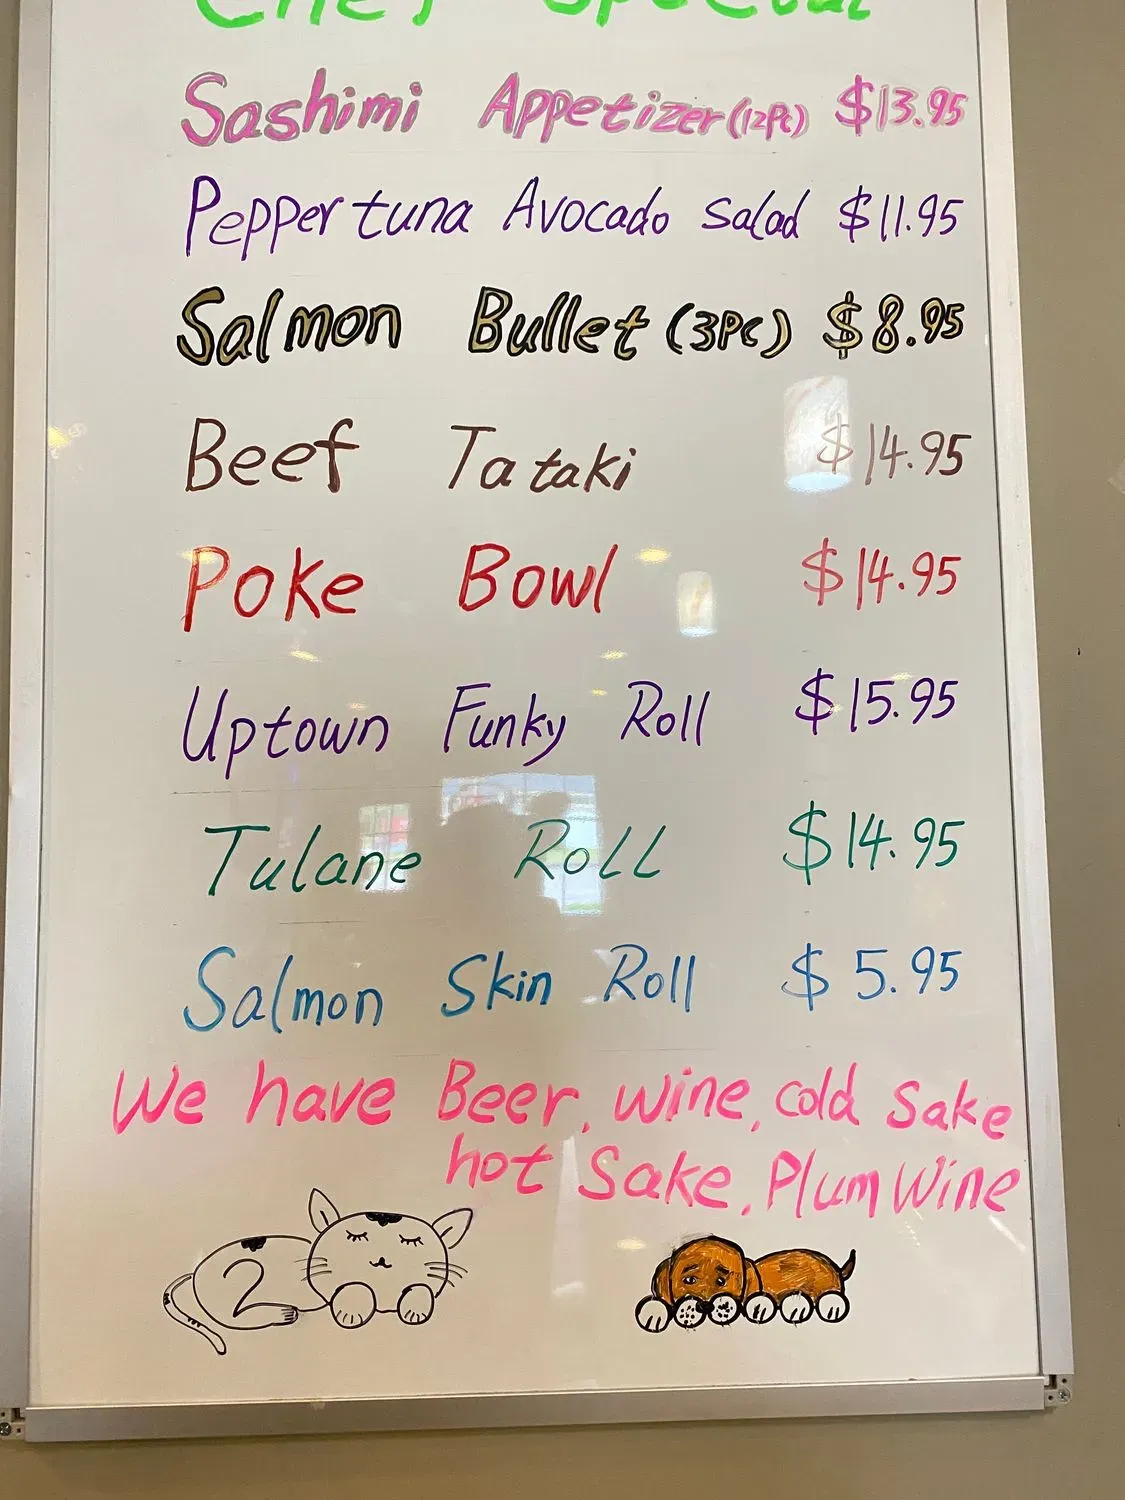 Chef Special
Sashimi Appetizer (12Pc) $13.95
Pepper tuna Avocado Salad $11.95
Salmon Bullet (3Pc) $8.95
Beef Tataki $14.95
Poke Bowl $14.95
Uptown Funky Roll $15.95
Tulane Roll $14.95
Salmon Skin Roll $5.95
We have Beer, wine, cold Sake
hot Sake, Plum Wine
2